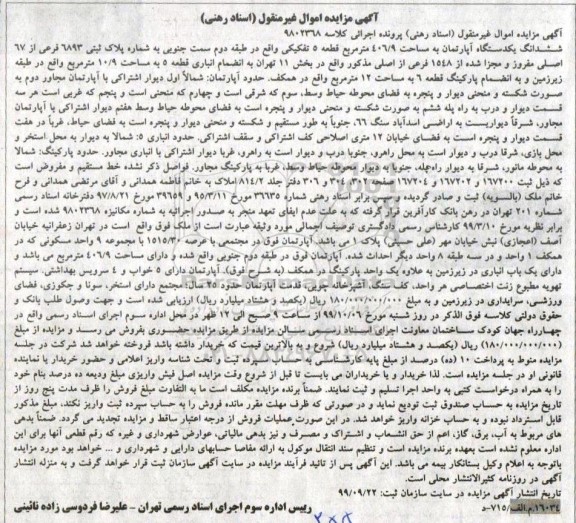 آگهی مزایده اموال غیرمنقول (اسناد رهنی)
آگهی مزایده اموال غیرمنقول (اسناد رهنی) پرونده اجرائی کلاسه ۹۸۰۲۳۶۸
ششدانگ یکدستگاه آپارتمان به مساحت ۴۰۶/۹ مترمربع قطعه ۵ تفکیکی واقع در طبقه دوم سمت جنوبی به شماره پلاک ثبتی ۶۸۹۳ فرعی از ۶۷
اصلی مفروز و مجزا شده از ۱۵۴۸ فرعی از اصلی مذکور واقع در بخش ۱۱ تهران به انضمام انباری قطعه ۵ به مساحت ۱۰/۹ مترمربع واقع در طبقه
زیرزمین و به انضمام پارکینگ قطعه ۶ به مساحت ۱۲ مترمربع واقع در همکف. حدود آپارتمان: شمالاً اول دیوار اشتراکی با آپارتمان مجاور دوم به
صورت شکسته و منحنی دیوار و پنجره به فضای محوطه حیاط وسط، سوم که شرقی است و چهارم که منحنی است و پنجم که غربی است هر سه
قسمت دیوار و درب به راه پله ششم به صورت شکسته و منحنی دیوار و پنجره است به فضای محوطه حیاط وسط هفتم دیوار اشتراکی با آپارتمان
مجاور، شرقاً دیواریست به اراضی اسدآباد سنگ ۶۶، جنوباً به طور مستقیم و شکسته و منحنی دیوار و پنجره است به فضای حیاط، غرباً در هفت
قسمت دیوار و پنجره است به فضای خیابان ۱۲ متری اصلاحی کف اشتراکی و سقف اشتراکی. حدود انباری ۵: شمالا به دیوار به محل استخر و
محل بازی، شرقا درب و دیوار است به محل راهرو، جنوبا درب و دیوار است به راهرو، غربا دیوار اشتراکی با انباری مجاور. حدود پارکینگ: شمالا
به محوطه مانور، شرقا به دیوار راه‌پله، جنوبا به دیوار محوطه حیاط وسط، غربا به پارکینگ مجاور. فواصل ذکر نشده خط مستقیم و مفروض است
که ذیل ثبت ۱۶۷۲۰۰ و ۱۶۷۲۰۲ و ۱۶۷۲۰۴ صفحات ۳۰۰ و ۳۰۳ و ۳۰۶ دفتر جلد ۸۱۴/۲ املاک به خانم فاطمه همدانی و آقای مرتضی همدانی و فرح
خانم ملک (بالسویه) ثبت و صادر گردیده است و برابر اسناد رهنی شماره ۳۶۶۳۵ مورخ ۹۵/۳/۱۱ و ۳۹۶۵۹ مورخ ۹۷/۸/۲۱ دفترخانه اسناد رسمی
شماره ۲۰۱ تهران در رهن بانک کارآفرین قرار گرفته که به علت عدم ایفای تعهد منجر به صدور اجرائیه به شماره مکانیزه ۹۸۰۲۳۶۸ شده است و
برابر نظریه مورخ ۹۹/۳/۱۰ کارشناس رسمی دادگستری توصیف اجمالی مورد وثیقه عبارت است از ملک فوق واقع است در تهران زعفرانیه خیابان
آصف (اعجازی) نبش خیابان مهر (علی حسینی) پلاک ۱ می باشد. آپارتمان فوق در مجتمعی با عرصه ۱۵۱۵/۳۰ با مجموعه ۹ واحد مسکونی که در
همکف ۱ واحد و در سه طبقه ۸ واحد دیگر احداث شده، آپارتمان فوق در طبقه دوم جنوبی واقع شده و دارای مساحت ۴۰۶/۹ مترمربع می باشد و
دارای یک باب انباری در زیرزمین به علاوه یک واحد پارکینگ در همکف (به شرح فوق). آپارتمان دارای ۵ خواب و ۴ سرویس بهداشتی، سیستم
تهویه مطبوع زنت اختصاصی هر واحد، کف سنگ، آشپزخانه اوپن می باشد. قدمت آپارتمان حدود ۲۵ سال، مجتمع دارای استخر، سونا و جکوزی، فضای
ورزشی، سرایداری در زیرزمین و به مبلغ ۱۸۰/۰۰۰/۰۰۰/۰۰۰ ریال (یکصد و هشتاد میلیارد ریال) ارزیابی شده است و جهت وصول طلب بانک و
حقوق دولتی کلاسه فوق الذکر در روز شنبه مورخ ۹۹/۱۰/۰۶ از ساعت ۹ صبح الی ۱۲ ظهر در محل اداره سوم اجرای اسناد رسمی واقع در
چهارراه جهان کودک ساختمان معاونت اجرای اسناد رسمی سالن مزایده از طریق مزایده حضوری بفروش می رسد و مزایده از مبلغ
(۱۸۰/۰۰۰/۰۰۰/۰۰۰) ریال (یکصد و هشتاد میلیارد ریال) شروع و به بالاترین قیمت که خریدار داشته باشد فروخته خواهد شد شرکت در جلسه
مزایده منوط به پرداخت ۱۰ (ده) درصد از مبلغ پایه کارشناسی به حساب سپرده ثبت و با شناسه واریز اعلامی و حضور خریدار یا نماینده
قانونی او در جلسه مزایده است. لذا خریدار و یا خریداران می بایست تا قبل از شروع وقت مزایده اصل فیش واریزی مبلغ ودیعه ده درصد بنام خود
را به همراه درخواست کتبی به واحد اجرا تسلیم و ثبت نمایند. ضمناً برنده مزایده مکلف است ما به التفاوت مبلغ فروش را ظرف مدت پنج روز از
تاریخ مزایده به حساب صندوق ثبت تودیع نماید و در صورتی که ظرف مهلت مقرر مانده فروش را به حساب سپرده ثبت واریز نکند، مبلغ مذکور
قابل استرداد نبوده و به حساب خزانه واریز خواهد شد. در این صورت عملیات فروش از درجه اعتبار ساقط و مزایده تجدید می گردد. ضمناً بدهی
های مربوط به آب، برق، گاز، اعم از حق انشعاب و اشتراک و مصرف و نیز بدهی مالیاتی، عوارض شهرداری و غیره که رقم قطعی آنها برای این
اداره معلوم نشده است بعهده برنده مزایده است و تنظیم سند انتقال موکول به ارائه مفاصا حسابهای دارایی و شهرداری و ... خواهد بود مورد مزایده
باتوجه به اعلام وکیل بستانکار بیمه می باشد. این آگهی پس از تائید فرآیند مزایده در سایت آگهی سازمان ثبت قرار خواهد گرفت و به منزله انتشار
آگهی در روزنامه کثیرالانتشار محلی است.
تاریخ انتشار آگهی مزایده در سایت سازمان ثبت: ۹۹/۰۹/۲۲
۱۶۰۳۴/م.الف/۷۱۵-د
رییس اداره سوم اجرای اسناد رسمی تهران – علیرضا فردوسی زاده نائینی